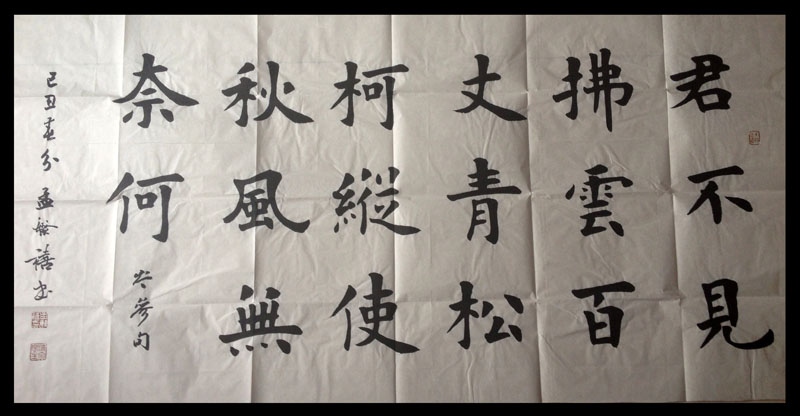 君不見
拂雲百
丈青松
柯縱使
秋風無
奈何
岑參句
己丑春分 孟繁禧书